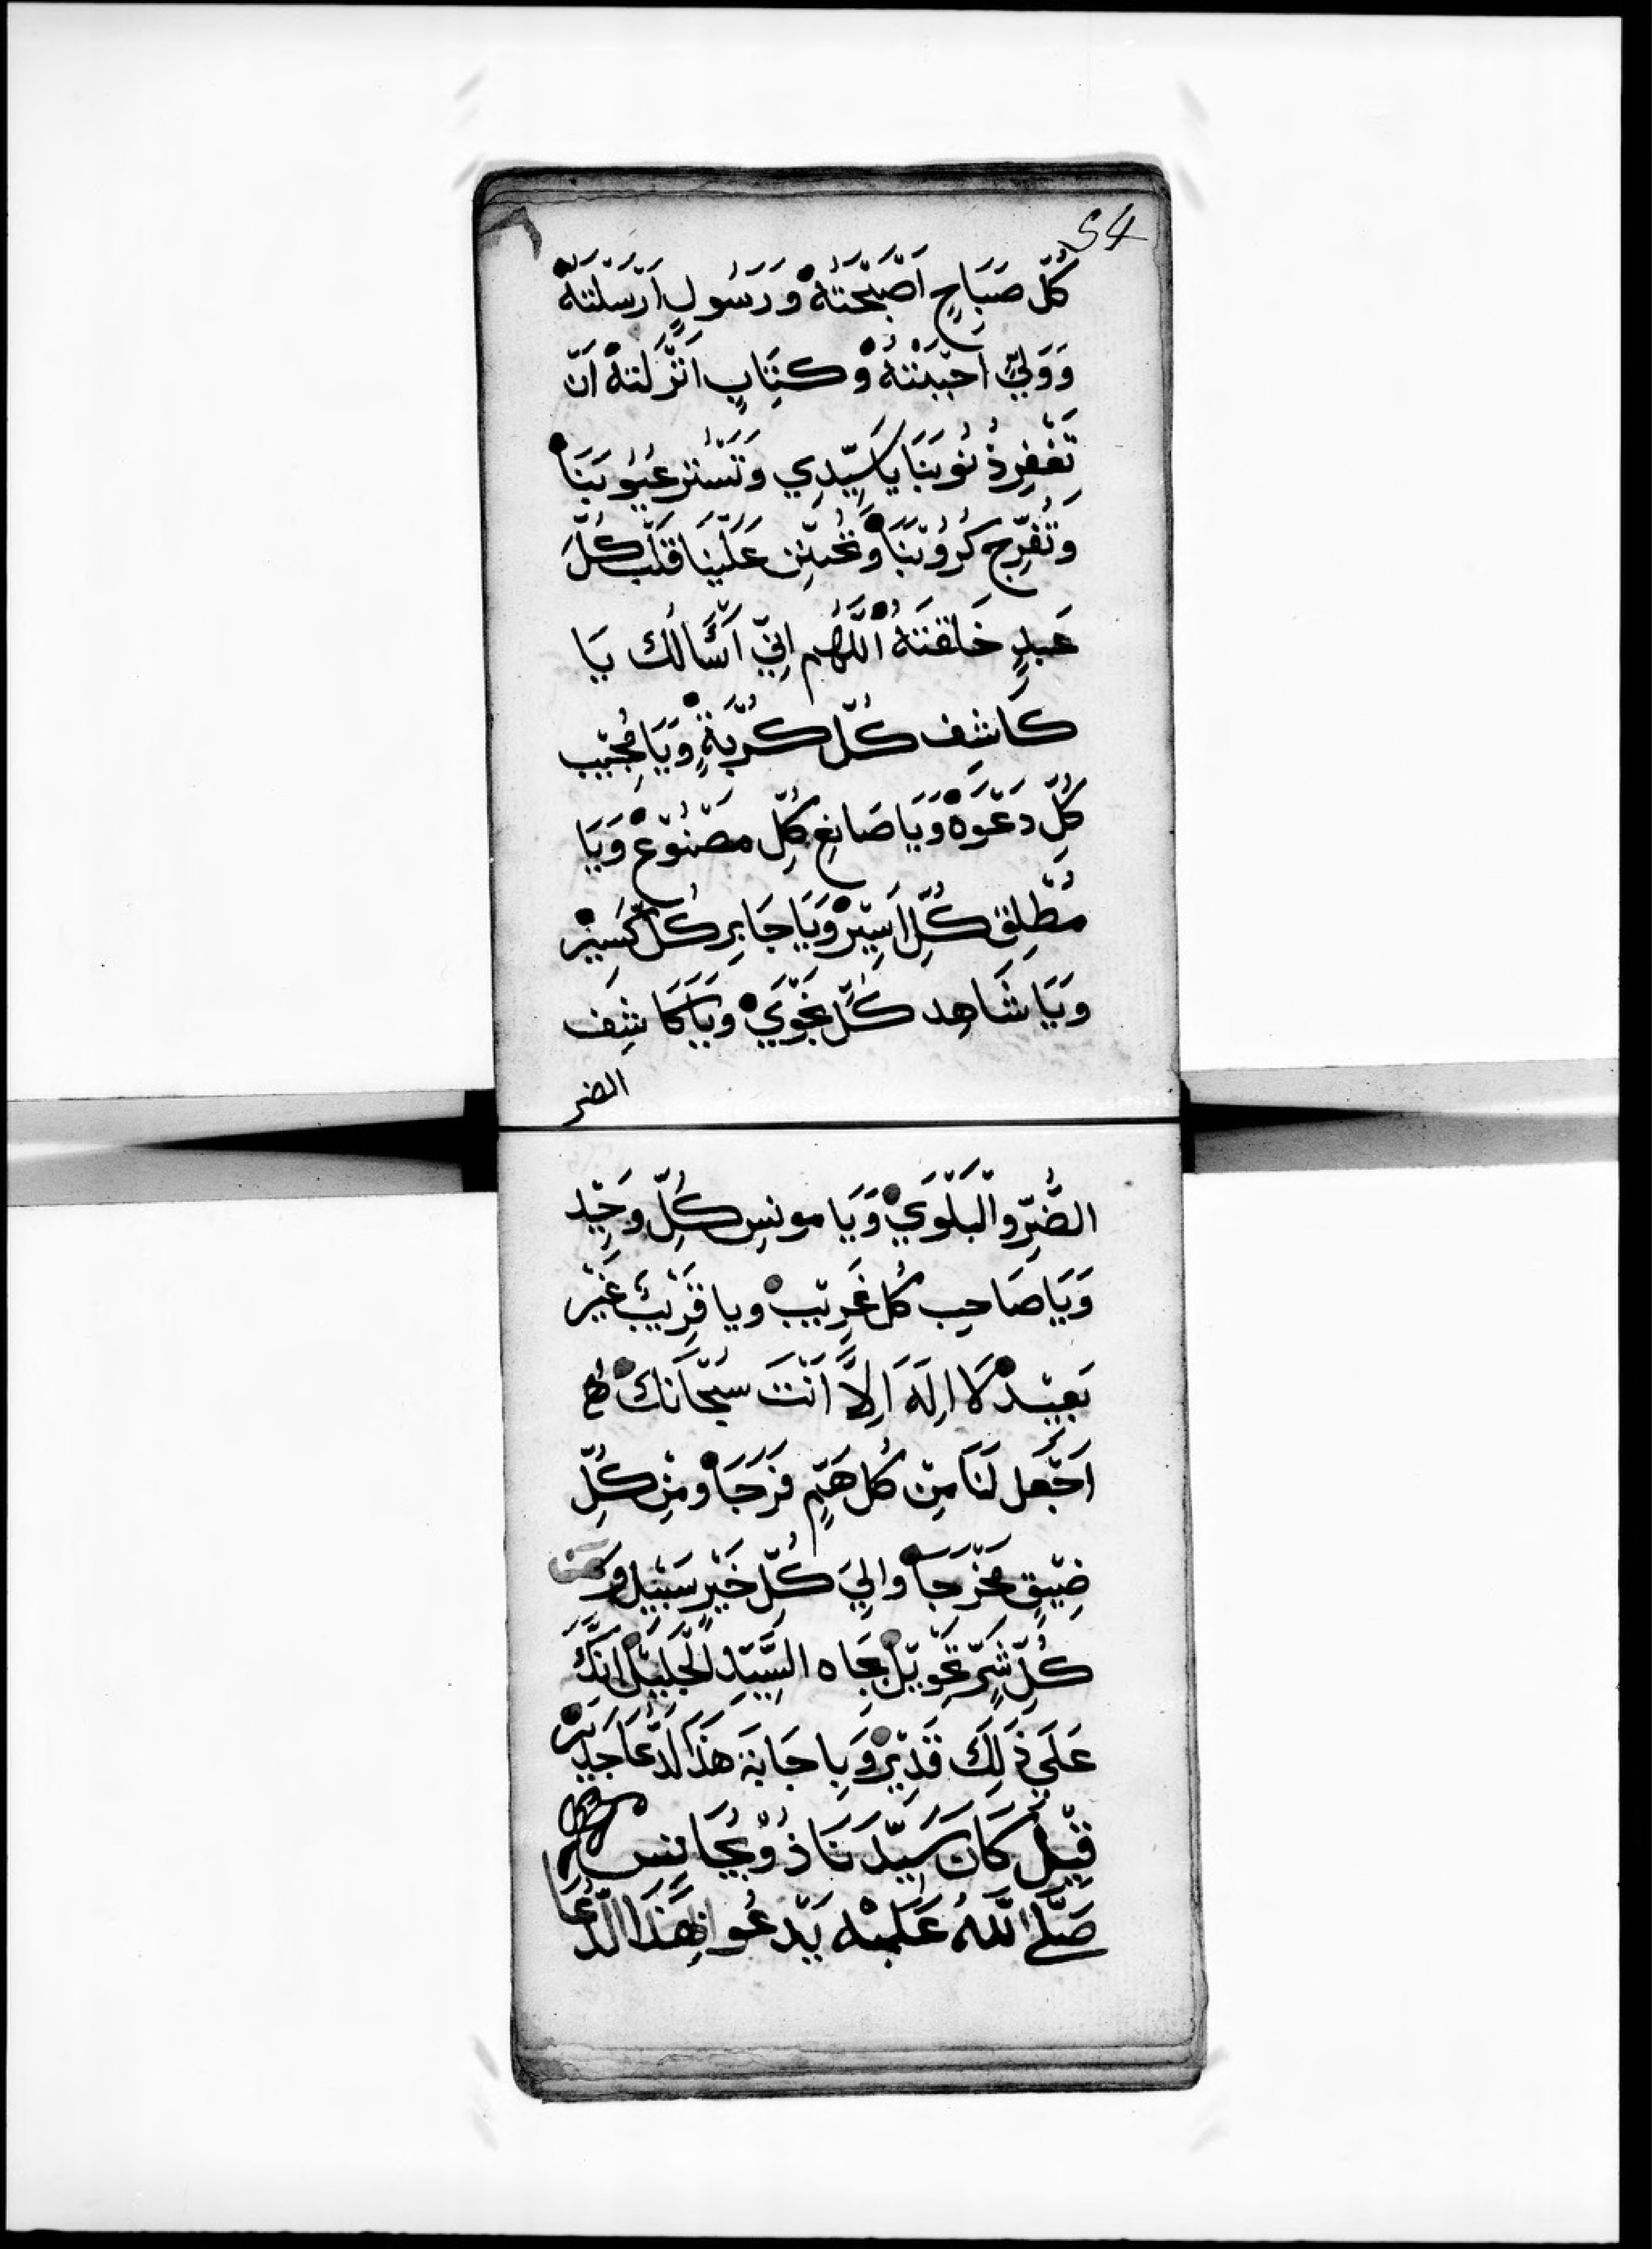 54
كُلّ صَبَاحٍ اَصْبَحْتَهُ وَرَسُولٍ اَرْسَلْتَهُ
وَوَلِيٍّ احْبَبْتَهُ وْكِتَابٍ انْزَلتَهُ اَنّ
تَغْفِر ذُنُوبَنَا يَاسَيِّدِي وَتَسْتُر عُيُوبَنَا
وَتُفَرِّج كُرُوبَنَا وَتُحَنِّن عَلَيْنَا قَلْب كُلَّ
عَبدٍ خَلَقتَهُ اللَّهُم اِنِّي اَسْاَلُكَ يَا
كَاشِف كُلّ كُرْبَةٍ وَيَا مُجِيْب
كُلِّ دَعْوَه وَيَا صَانِع كُلِّ مَصْنُوْع وَيَا
مُطْلِق كُلِّ اَسِيْر وَيَا جَابِر كُلّ كَسِيْر
وَيَا شَاهِد كُلّ نَجْوَيْ وَيَا كَاشِف
الضر
الضُّرِّ والْبَلْوَيْ وَيَا مونِس كُلِّ وَحِيْد
وَيَا صَاحِب كُل غَرِيْب ويا قَرِيْبَ غَيْر
بَعِيْد لَا اِلَهَ اِلاَّ اَنْتَ سُبْحَانَكَ
اَجْعَل لَنَا مِنْ كُل هَمٍّ فَرَجَا وَمِنْ كُلِّ
ضِيْقٍ مَخْرَجَا وَالِيَ كُلِّ خَيْرٍ سَبِيْل وَمن
كُلِّ شَرٍّ تَحْوِيْل بِجَاه السَّيِّدِ الْجَلِيْل اِنَّكَ
عَلَي ذَلِكَ قَدِيْر وَبِاجَابَة هَذَا لدُّعَا جَدِيْر
قِيْلَ كَانَ سَيِّدَنَا ذُوْيُحَانِس
صَلَّي اللَّهُ عَلَيْه يَدْعُوا بِهَذَا الدُّعَا